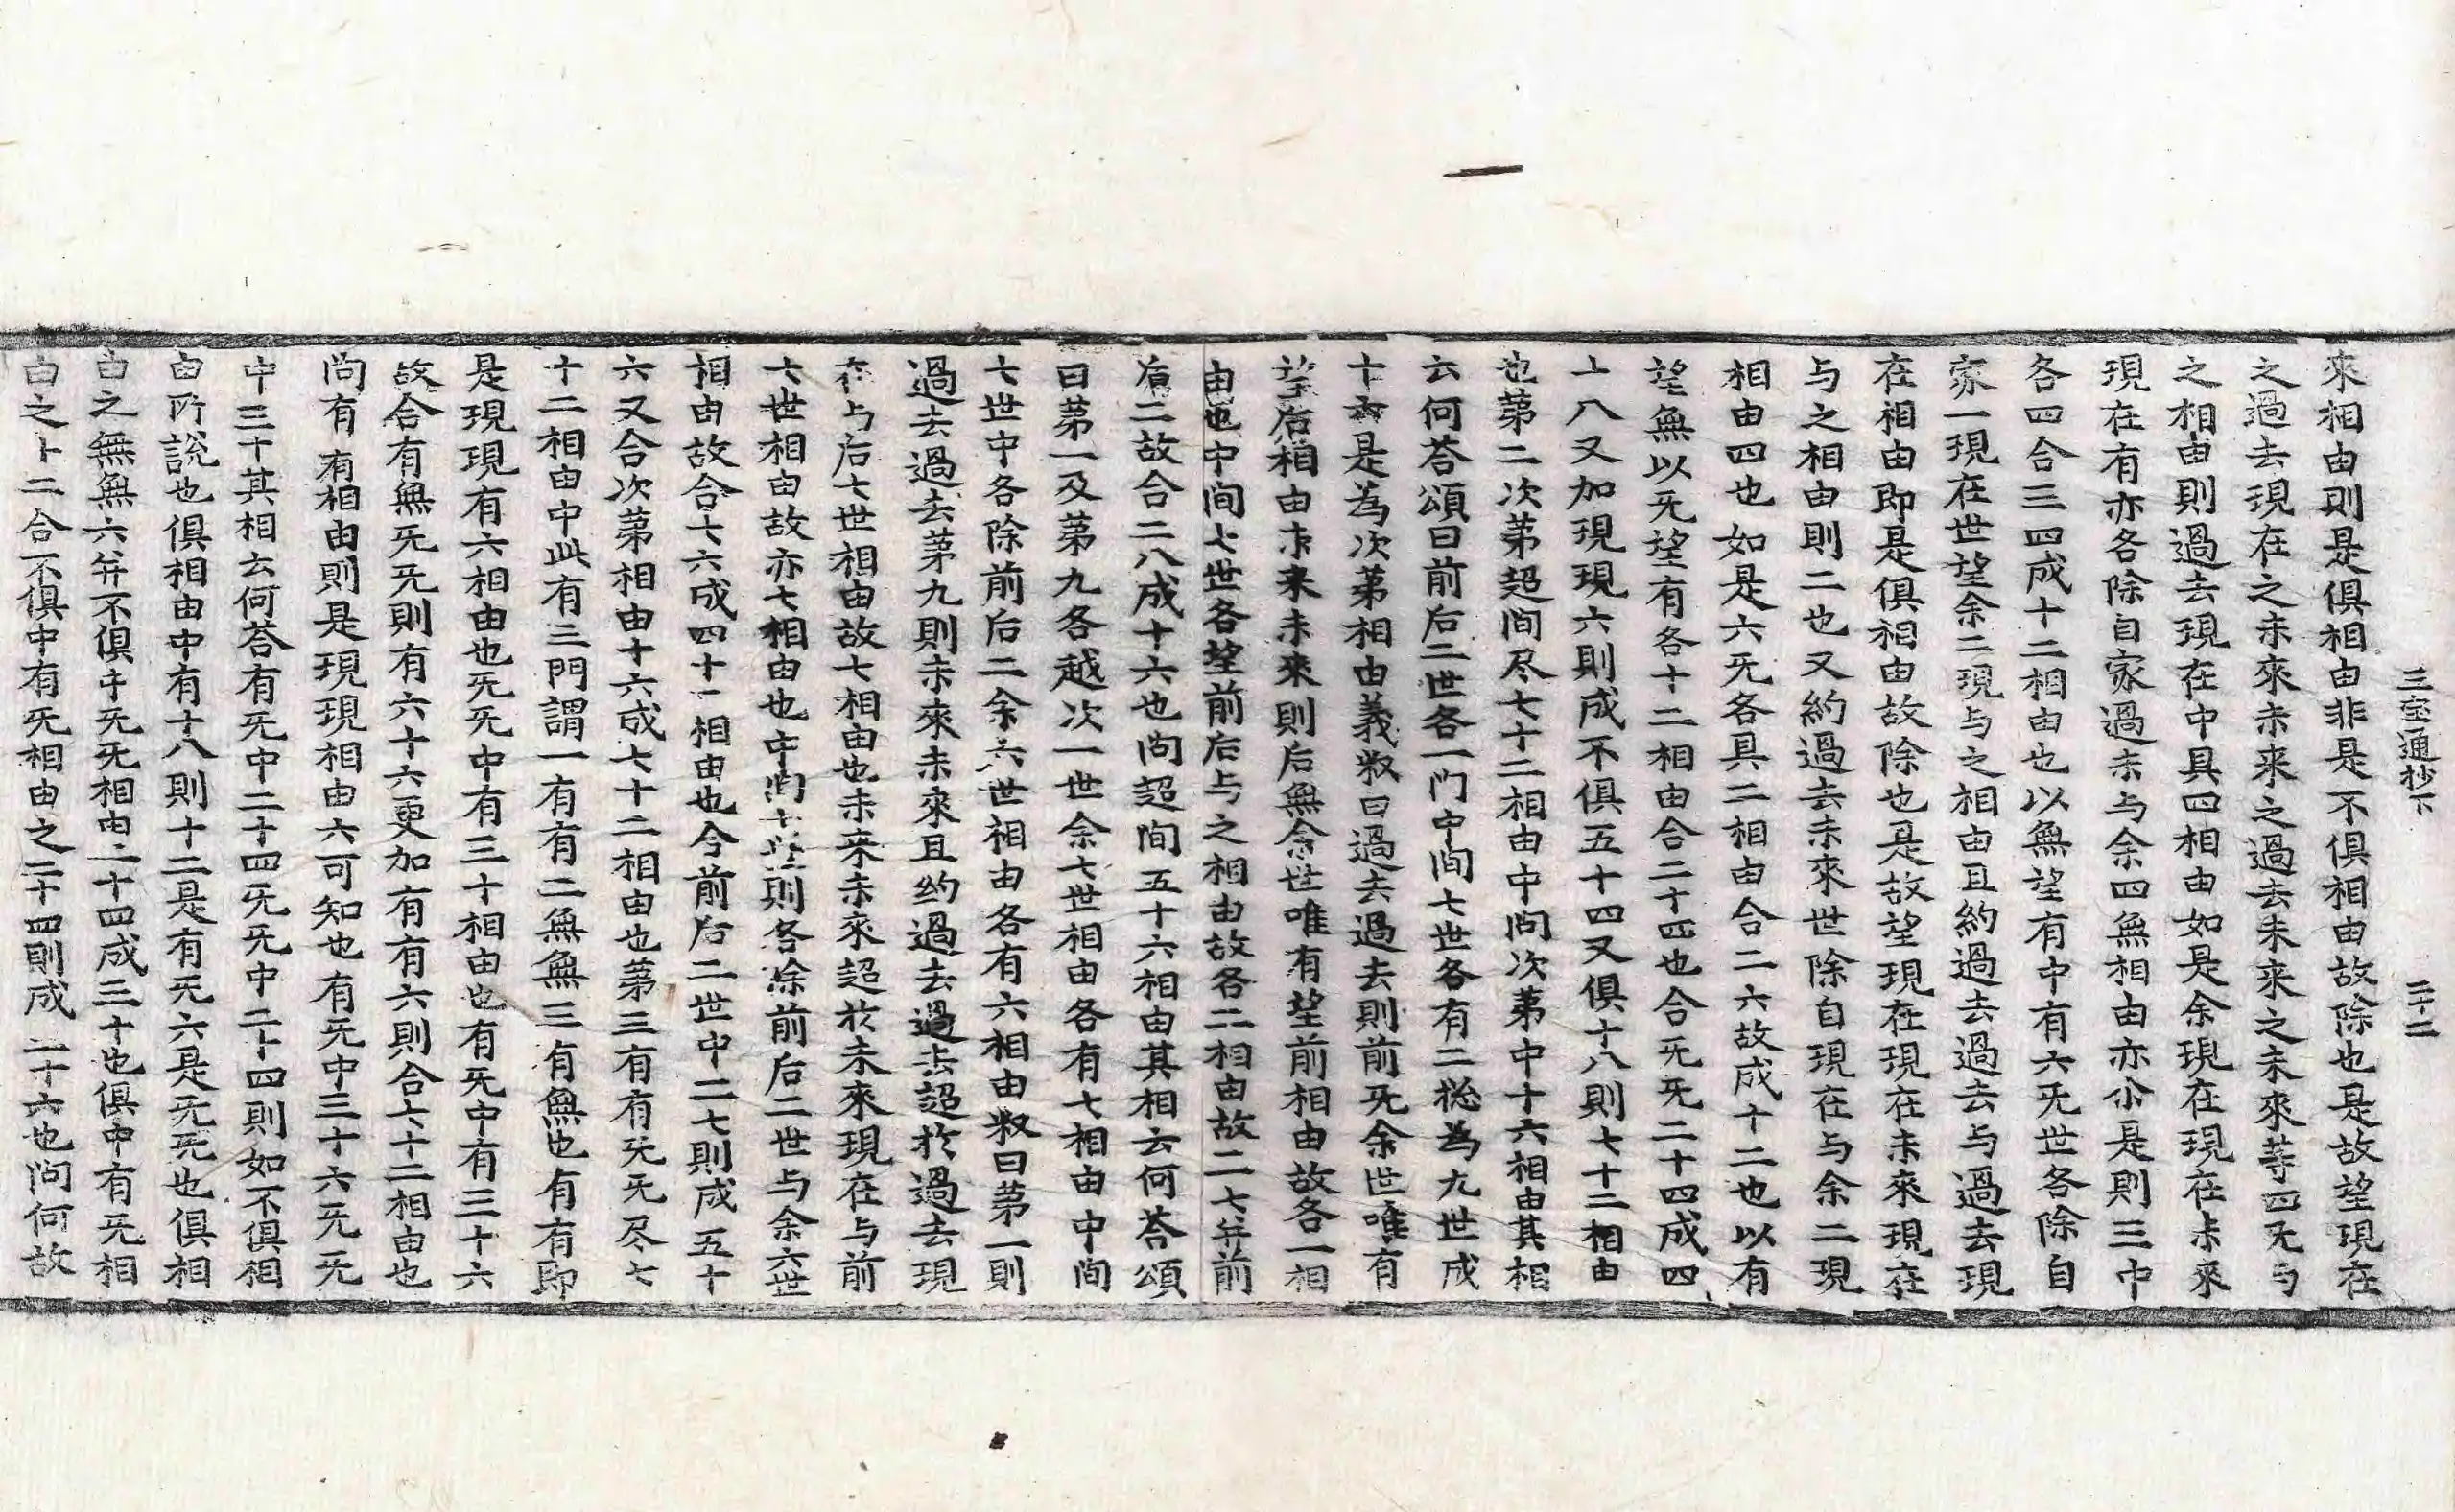 三宝通抄下 二十二
來相由則是俱相由非是不俱相由故除也是故望現在
之過去現在之未來未来之過去未来之未來等四旡与
之相由則過去現在中具四相由如是余現在現在未來
現在有亦各除自家過未与余四無相由亦尒是則三中
各四合三四成十二相由也以無望有中有六旡世各除自
家一現在世望余二現与之相由且約過去過去与過去現
在相由即是俱相由故除也是故望現在現在未來現在
与之相由則二也又約過去未來世除自現在与余二現
相由四也如是六旡各具二相由合二六故成十二也以有
望無以旡望有各十二相由合二十四也合旡旡二十四成四
十八又加現現六則成不俱五十四又俱十八則七十二相由
也第二次第超间尽七十二相由中问次第中十六相由其相
云何荅頌曰前后二世各一门中间七世各有二総為九世成
十六是為次第相由義釈曰過去過去則前旡余世唯有
望后相由未来未來則后無余世唯有望前相由故各一相
由也中间七世各望前后与之相由故各二相由故二七并前
后二故合二八成十六也问超间五十六相由其相云何荅頌
曰第一及第九各越次一世余七世相由各有七相由中间
七世中各除前后二余六世相由各有六相由釈曰第一則
過去過去第九則未來未來且约過去過去超於過去現
在与后七世相由故七相由也未来未來超於未來現在与前
七世相由故亦七相由也中间七世則各除前后二世与余六世
相由故合七六成四十二相由也今前后二世中二七則成五十
六又合次第相由十六成七十二相由也第三有有旡旡尽七
十二相由中此有三門謂一有有二無無三有無也有有即
是現現有六相由也旡旡中有三十相由也有旡中有三十六
故合有無旡旡則有六十六更加有有六則合七十二相由也
问有有相由則是現現相由六可知也有旡中三十六旡旡
中三十其相云何荅有旡中二十四旡旡中二十四則如不俱相
由所説也俱相由中有十八則十二是有旡六是旡旡也俱相
由之無無六并不俱中旡旡相由二十四成三十也俱中有旡相
由之十二合不俱中有旡相由之二十四則成三十六也问何故